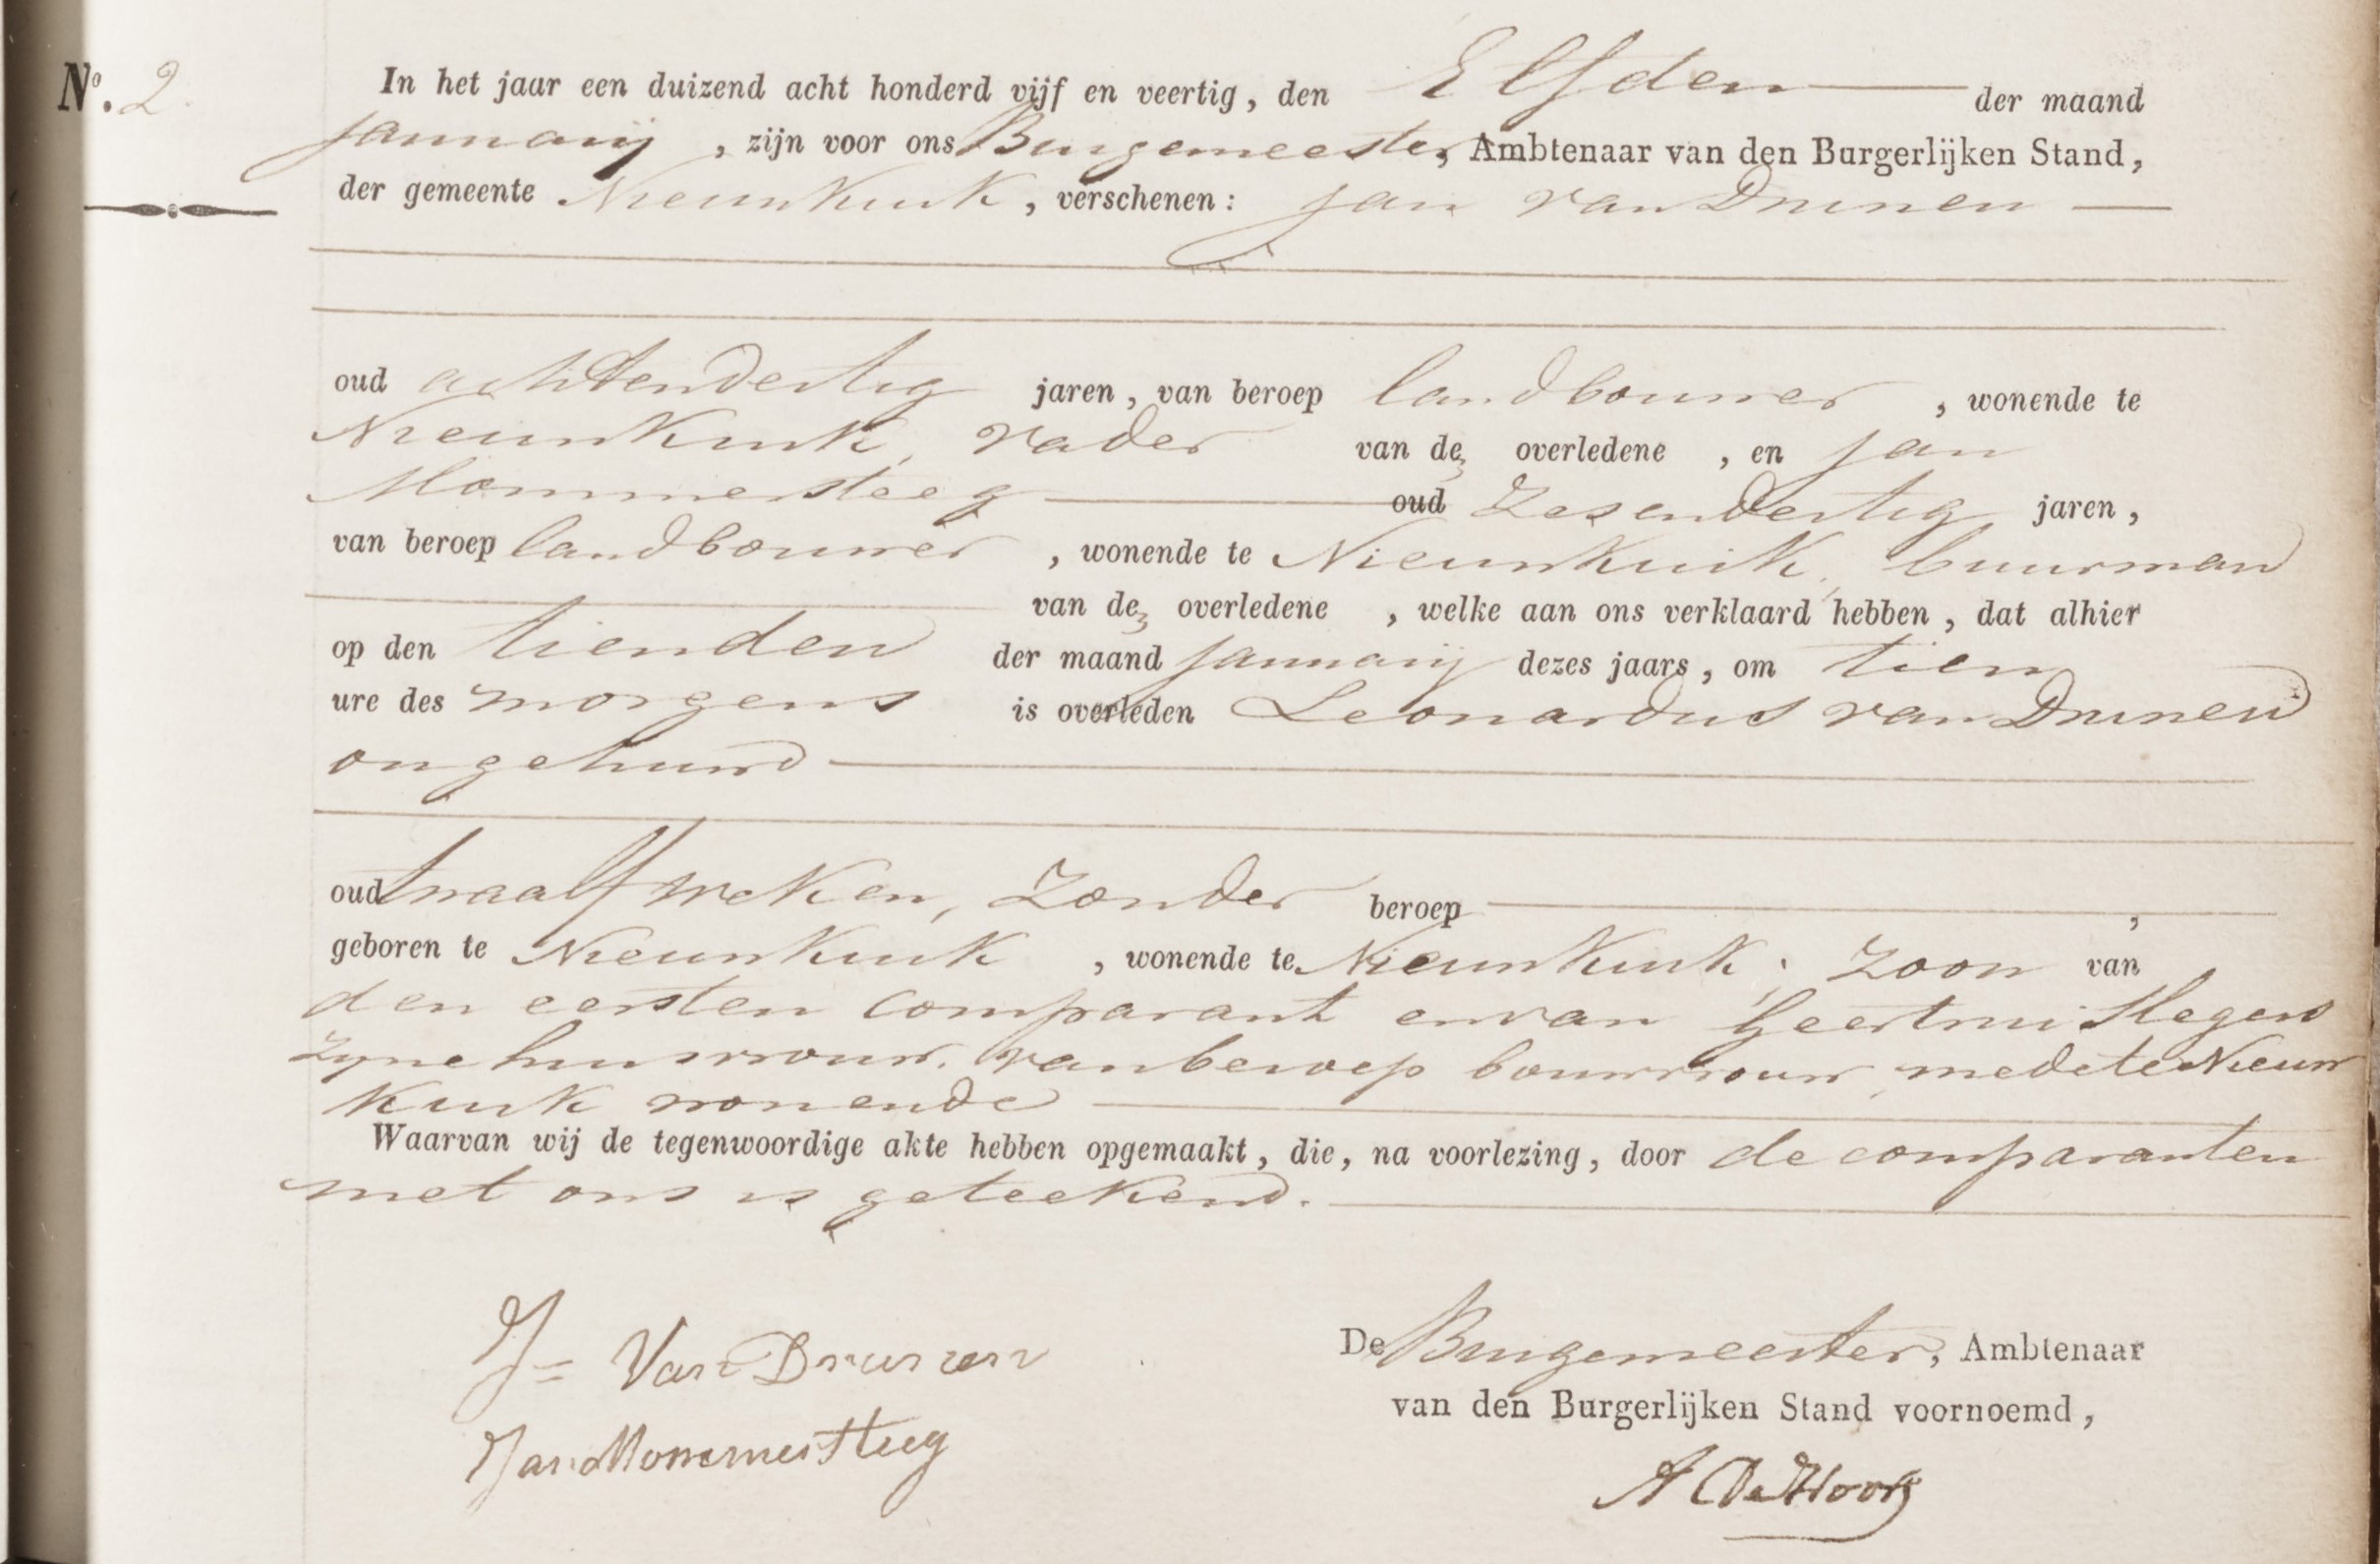 No. 2.
In het jaar een duizend acht honderd vijf en veertig, den Elfden der maand
januarij, zijn voor ons Burgemeester, Ambtenaar van den Burgerlijken Stand,
der gemeente Nieuwkuik, verschenen: Jan van Drunen
oud achtendertig jaren, van beroep landbouwer, wonende te
Nieuwkuik, vader van de, overledene, en Jan
Mommersteeg oud Zesendertig jaren,
van beroep landbouwer, wonende te Nieuwkuik, buurman
van de, overledene, welke aan ons verklaard hebben, dat alhier
op den tienden der maand januarij dezes jaars, om tien
ure des morgens is overleden Leonardus van Drunen
ongehuwd
oud twaalf weken, Zonder beroep,
geboren te Nieuwkuik, wonende te Nieuwkuik, Zoon van
den eersten comparant en van Geertrui Hegers
zyne huisvrouw. van beroep bouwvrouw, mede te Nieuw
kuik wonende
Waarvan wij de tegenwoordige akte hebben opgemaakt, die, na voorlezing, door de comparanten
met ons is geteekend.
J= Van Drunen
Jan Mommersteeg
De Burgemeester, Ambtenaar
van den Burgerlijken Stand voornoemd,
A De Hoog